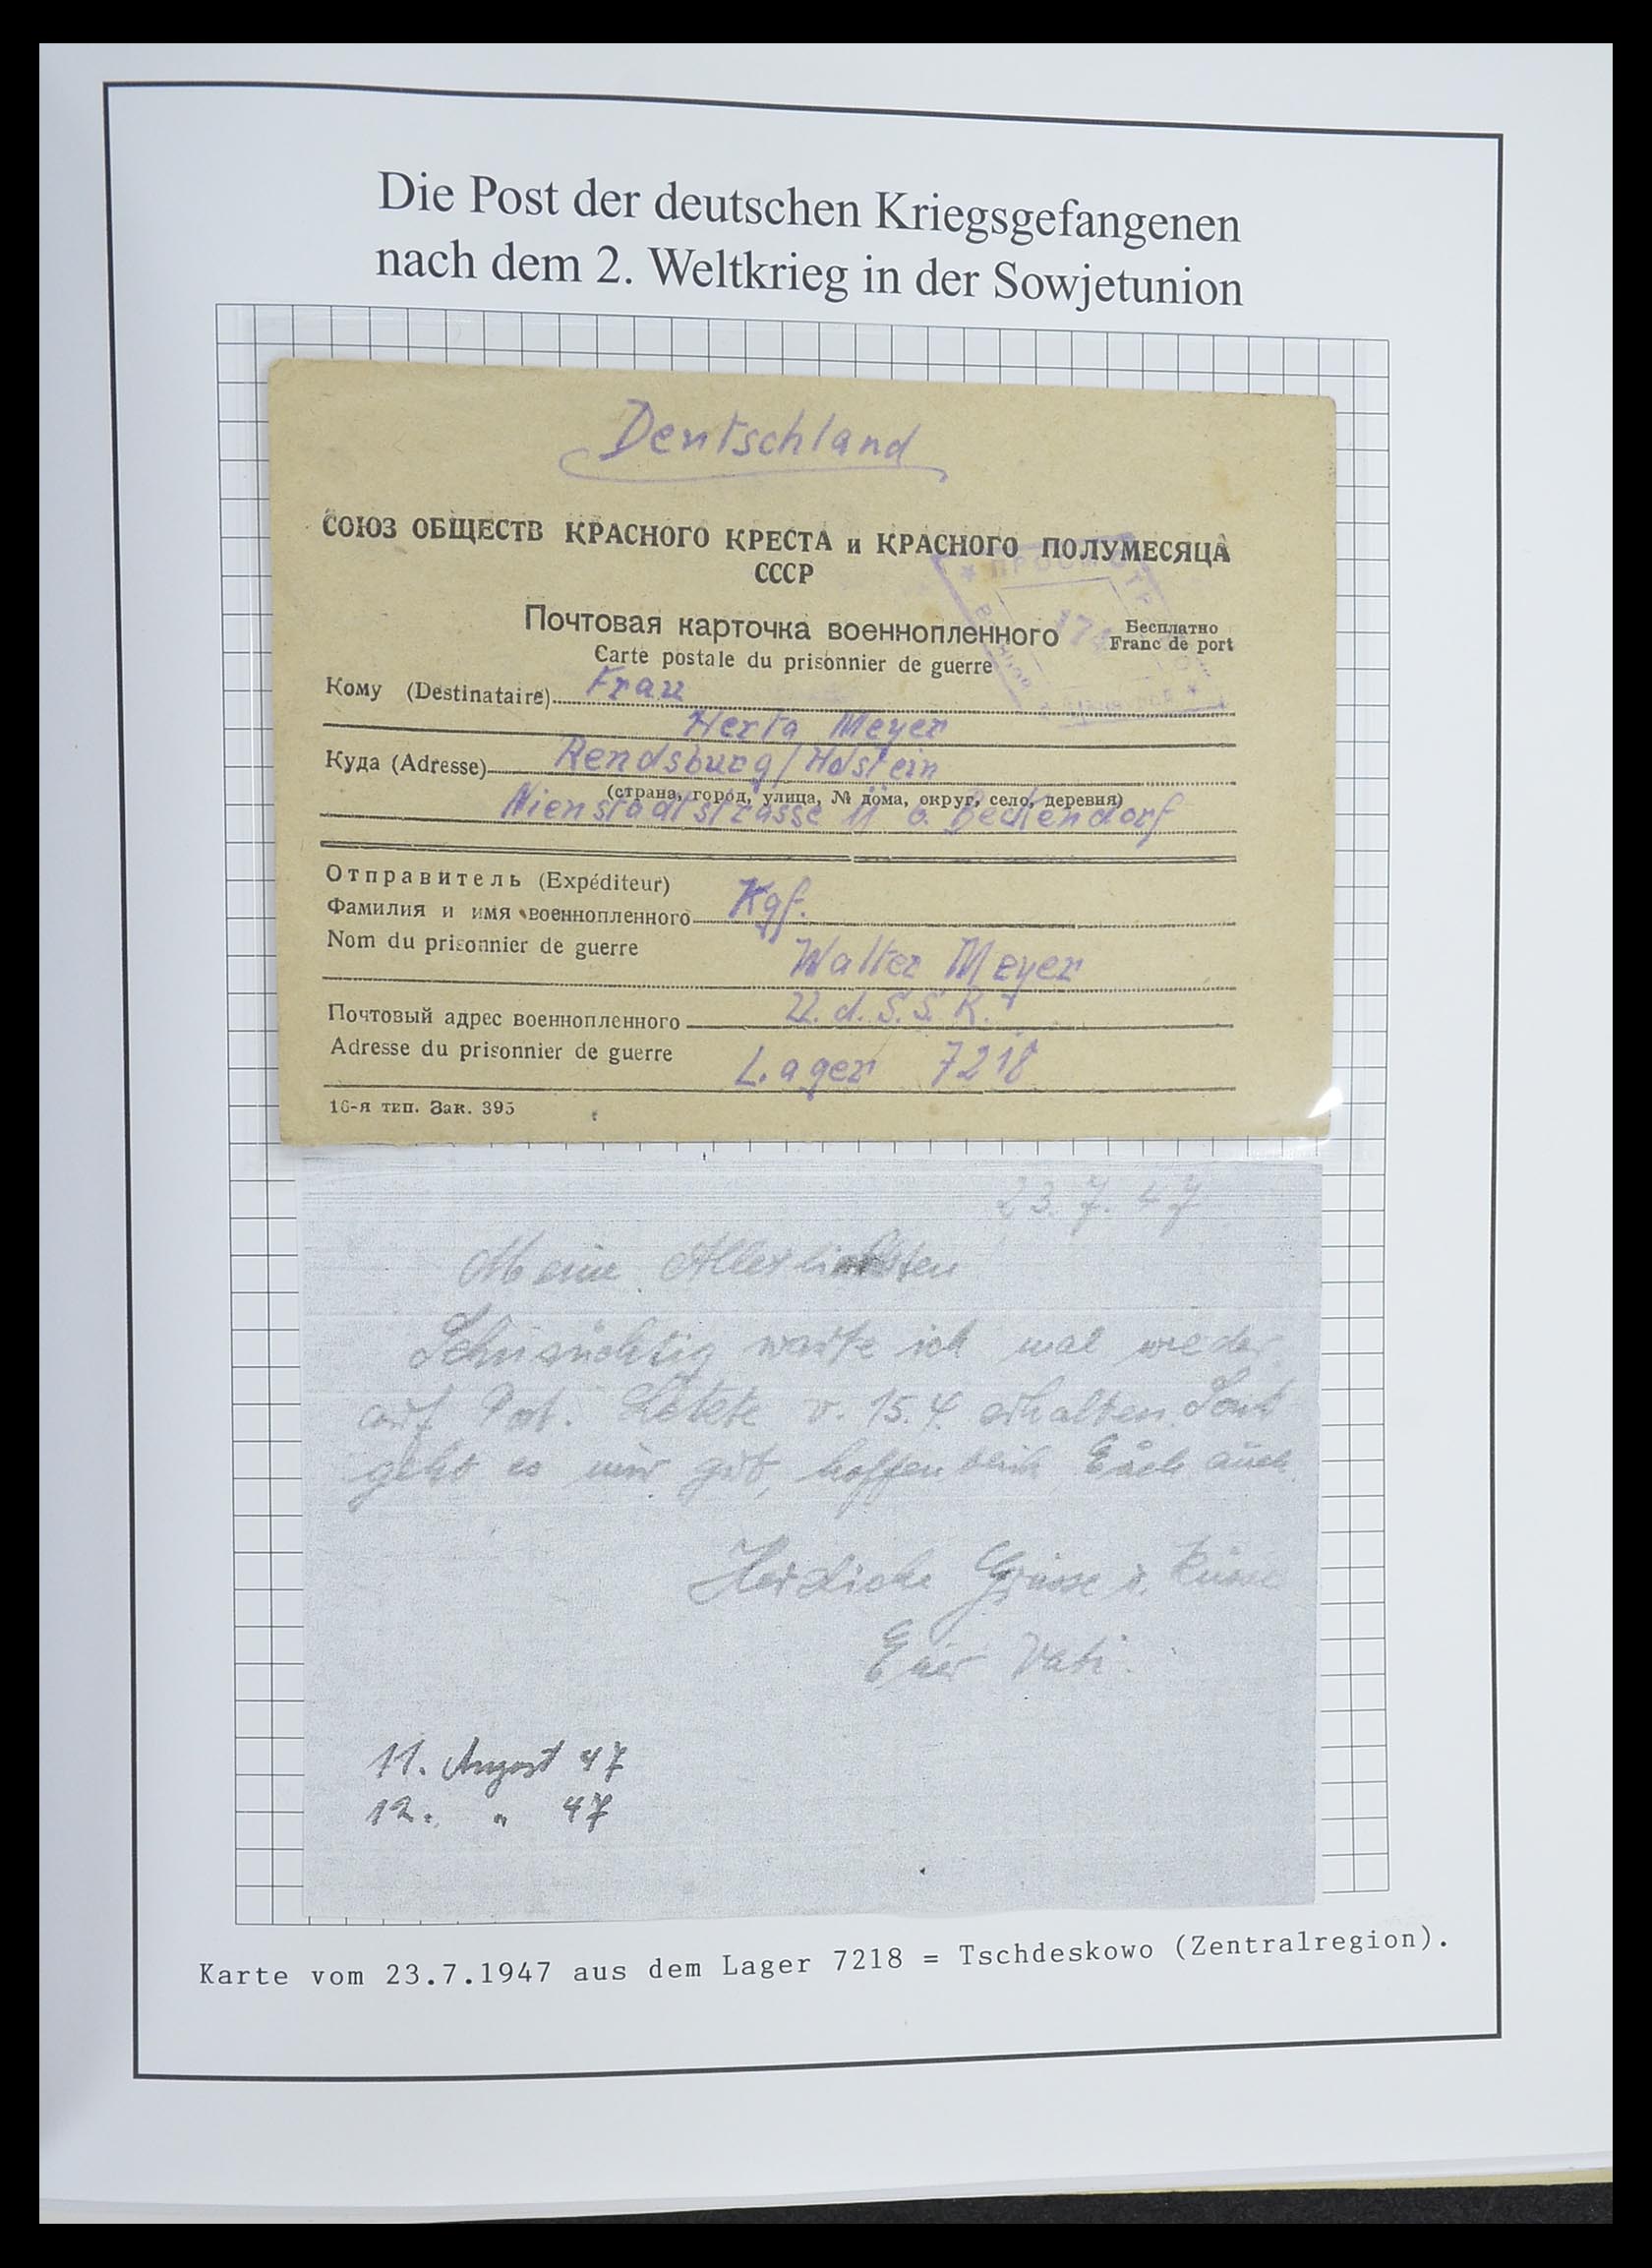 Die Post der deutschen Kriegsgefangenen
nach dem 2. Weltkrieg in der Sowjetunion
Deutschland
СОЮЗ ОБЩЕСТВ КРАСНОГО КРЕСТА и КРАСНОГО ПОЛУМЕСЯЦА
СССР
ПРОСМОТР
Почтовая карточка военнопленного
Бесплатно
Carte postale du prisonnier de guerre
Franc de port
Кому (Destinataire) Frau
Herta Meyer
Куда (Adresse) Rendsburg/Holstein
(страна, город, улица, № дома, округ, село, деревня)
Nienstadtstrasse 11 b. Beckendorf
Отправитель (Expéditeur)
Фамилия и имя военнопленного Kgf.
Nom du prisonnier de guerre
Walter Meyer
Почтовый адрес военнопленного U.d.S.S.R.
Adresse du prisonnier de guerre Lager 7218
16-я тип. Зак. 395
23.7.47
Meine Allerliebsten
Sehnsüchtig warte ich mal wieder
auf Post. Letzte v. 15.4. erhalten. Sonst
geht es mir gut, hoffentlich Euch auch.
Herzliche Grüsse u. Küsse
Euer Vati.
11. August 47
12. " 47
Karte vom 23.7.1947 aus dem Lager 7218 = Tschdeskowo (Zentralregion).